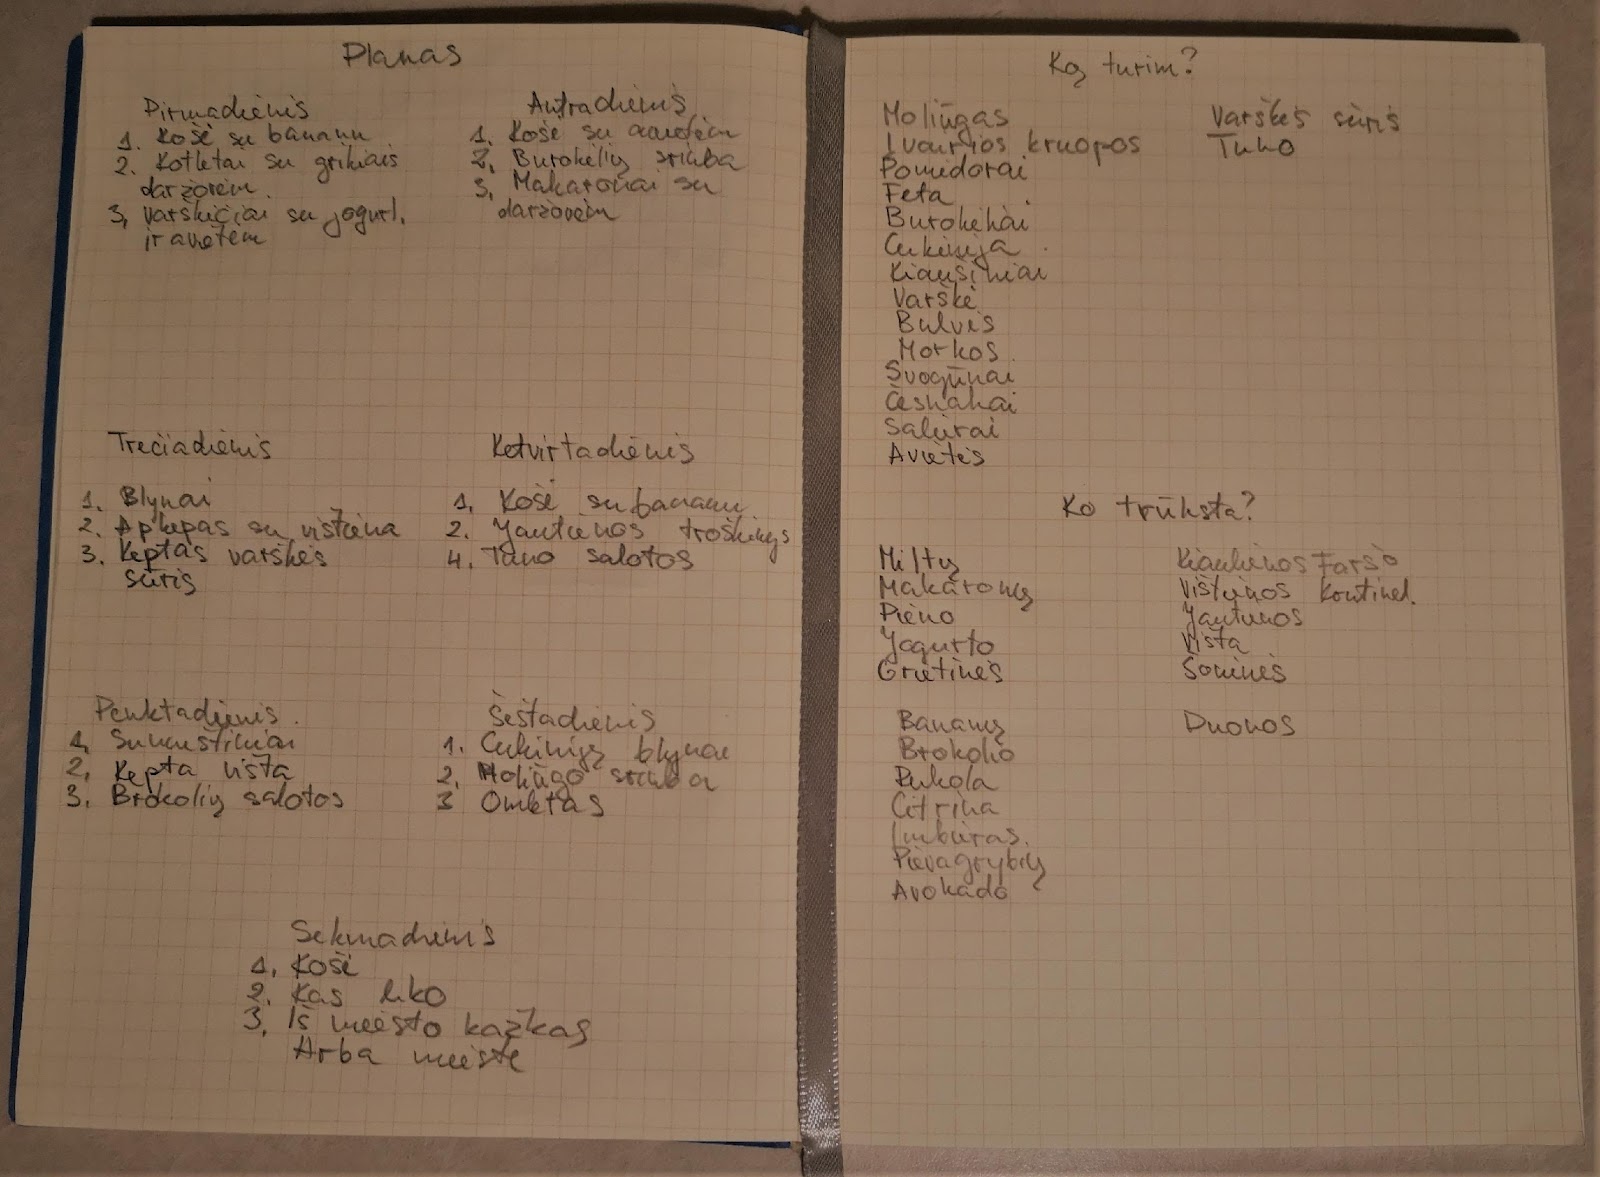 Planas
Pirmadienis
1. Košė su bananu
2. Kotletai su grikiais
daržovėm.
3. Varškėčiai su jogurt.
ir avietėm
Antradienis
1. Košė su avietėm
2. Burokėlių sriuba
3. Makaronai su
daržovėm
Trečiadienis
1. Blynai
2. Apkepas su vištiena
3. Keptas varškės
sūris
Ketvirtadienis
1. Košė su bananu
2. Jautienos troškinys
4. Tuno salotos
Penktadienis.
1. Sumuštiniai
2. Kepta višta
3. Brokolių salotos
Šeštadienis
1. Cukinijų blynai
2. Moliūgo sriuba
3 Omletas
Sekmadienis
1. Košė
2. Kas liko
3. Iš miesto kažkas
Arba mieste
Ką turim?
Moliūgas
Įvairios kruopos
Pomidorai
Feta
Burokėliai
Cukinija
Kiaušiniai
Varškė
Bulvės
Morkos
Svogūnai
Česnakai
Salierai
Avietės
Varškės sūris
Tuno
Ko trūksta?
Miltų
Makaronų
Pieno
Jogurto
Grietinės
Bananų
Brokolio
Rukola
Citrina
Imbieras.
Pievagrybių
Avokado
Kiaulienos Faršo
Vištienos
Jautienos
Višta
Šoninės
Duonos